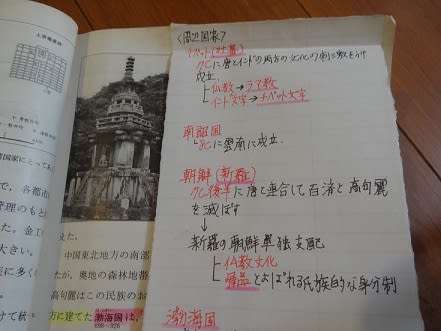 上京龍泉府
国家にとってあ
で，各都市
管理のもと
た。金工
大きい。
えた。
中国東北地方の南部
たが，奥地の森林地帯
高句麗はこの民族のお
方に建てた渤海国は，
698〜926
<周辺国家>
チベット(吐蕃)
7Cに唐とインドの両方の文化の影響をうけ
成立.
仏教→ラマ教
インド文字→チベット文字
南詔国
8Cに雲南に成立.
朝鮮(新羅)
7C後半に唐と連合して百済と高句麗
を滅ぼす
↓
新羅の朝鮮単独支配
仏教文化
骨品とよばれる氏族的な身分制
渤海国